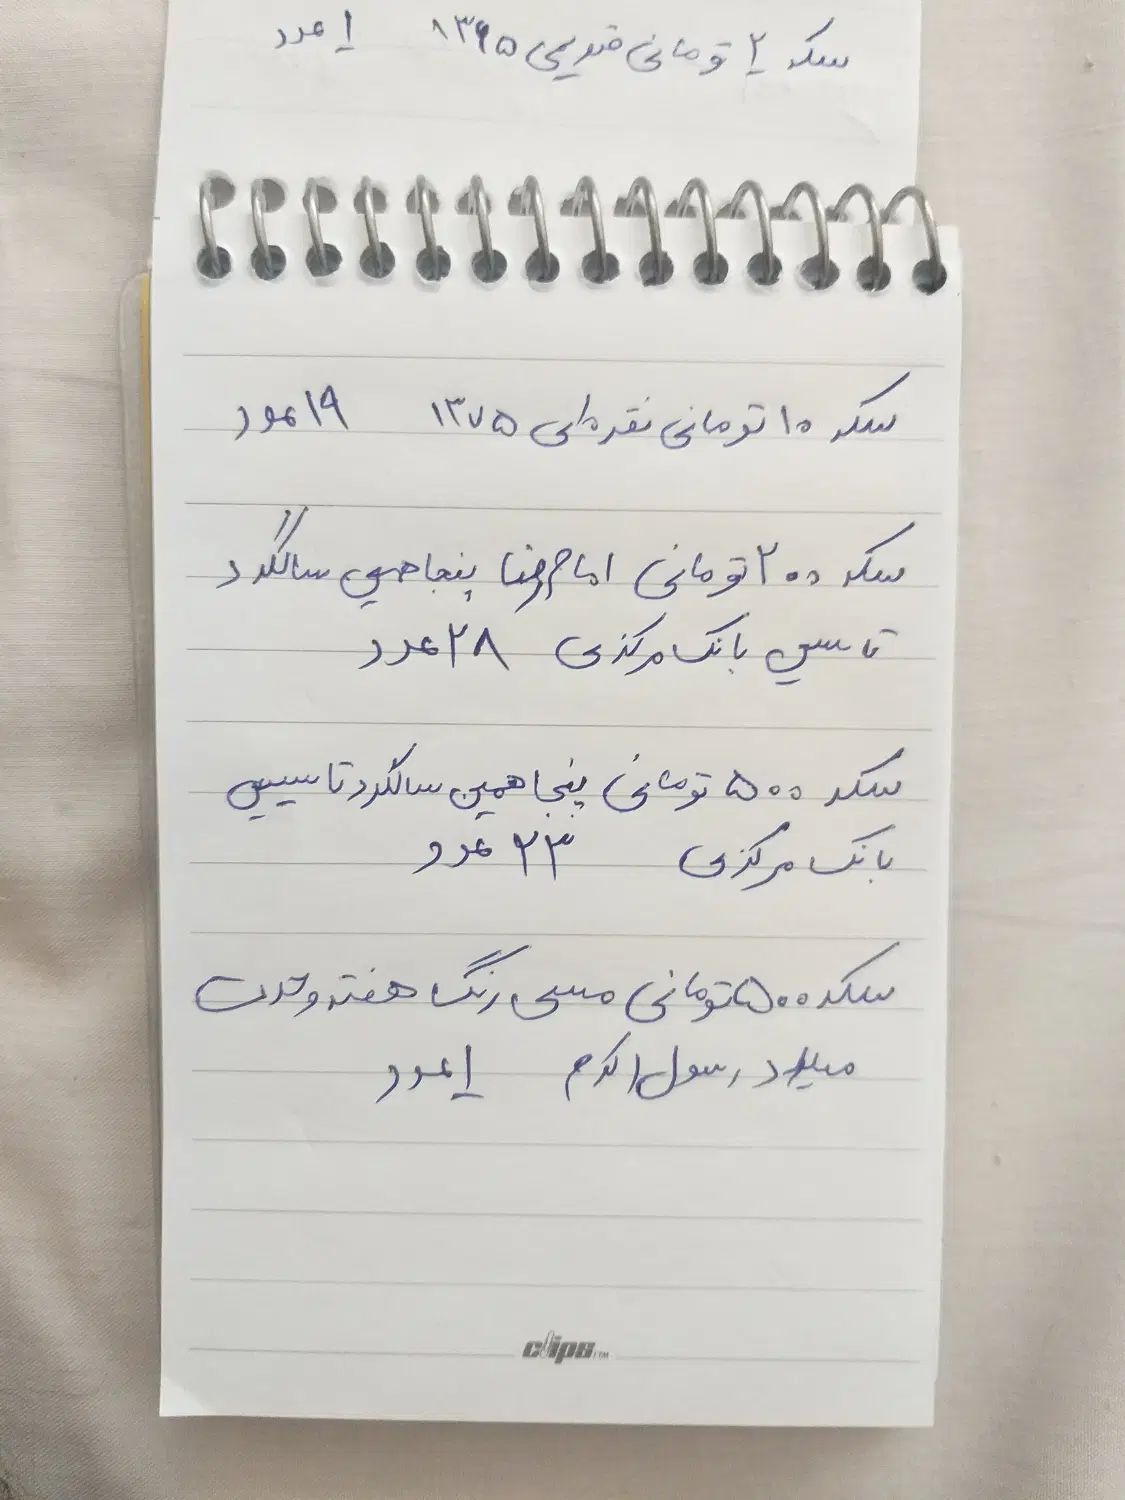 سکه ۲ تومانی قدیمی ۱۳۶۵ ۱ عدد
سکه ۱۰ تومانی نقره‌ای ۱۳۷۵ ۱۹ عدد
سکه ۲۰۰ تومانی امام رضا پنجاهمی سالگرد
تاسیس بانک مرکزی ۲۸ عدد
سکه ۵۰۰ تومانی پنجاهمین سالگرد تاسیس
بانک مرکزی ۲۳ عدد
سکه ۵۰۰ تومانی مسی رنگ هفته وحدت
میلاد رسول اکرم ۱ عدد
clips™